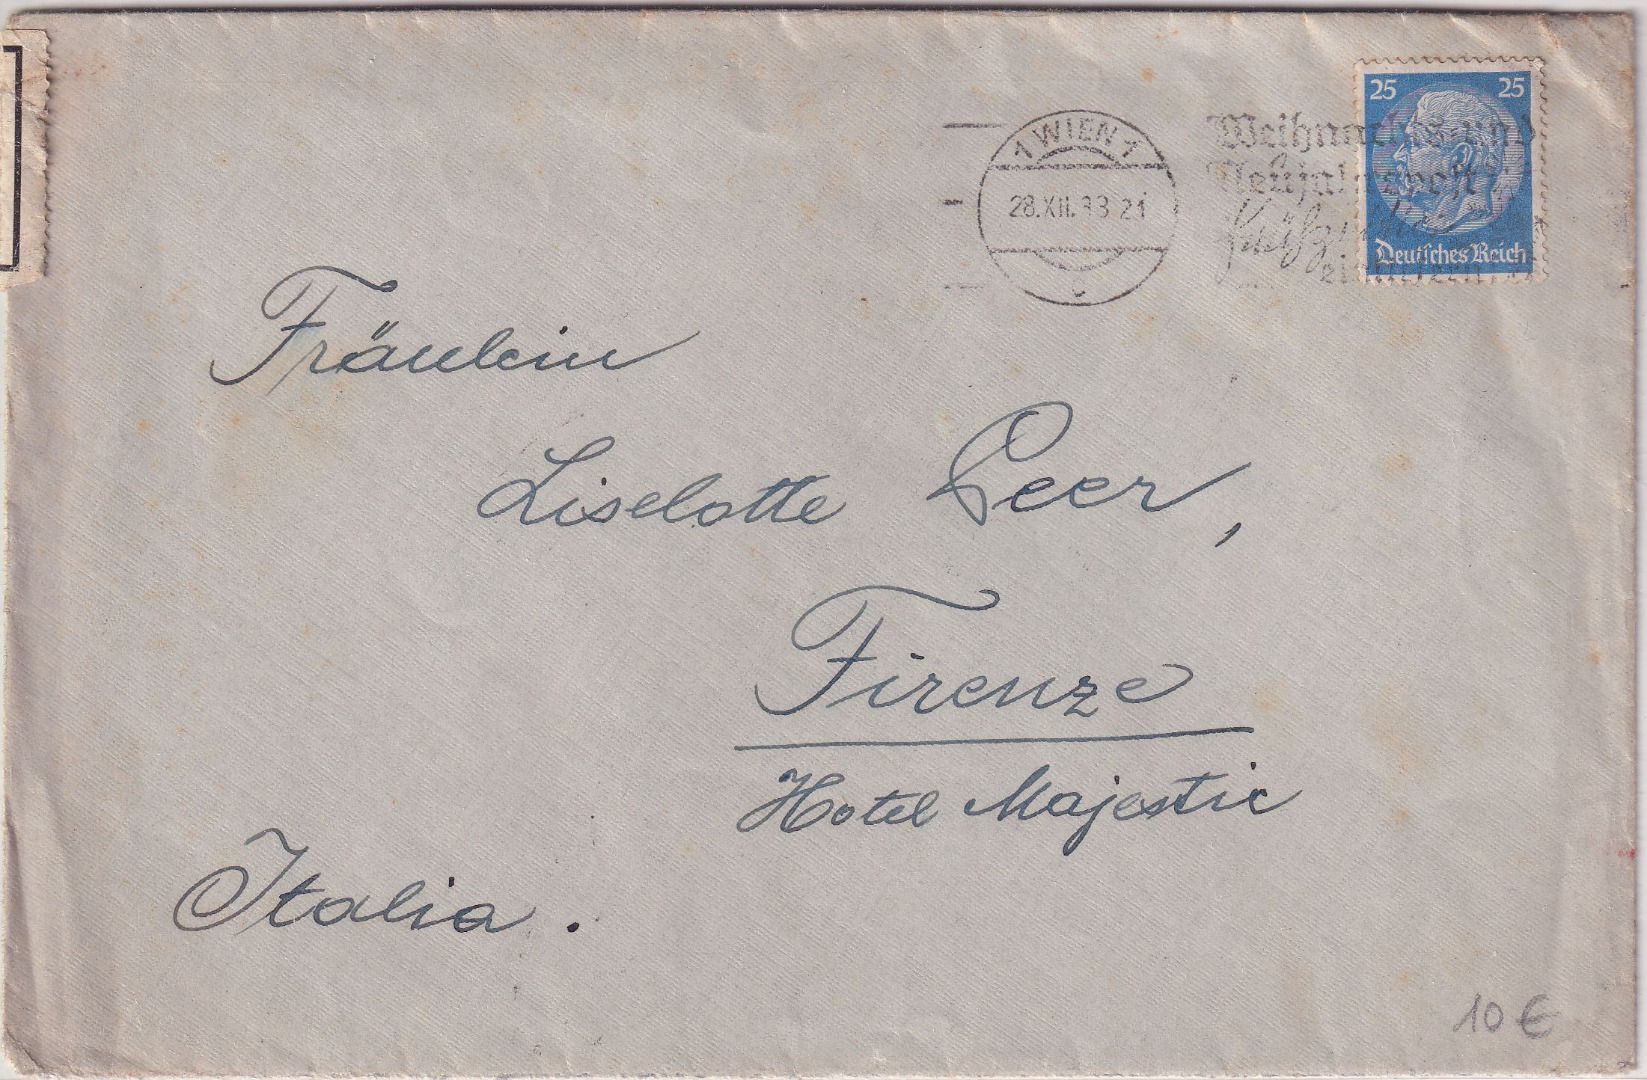 25 25
Deutsches Reich
1 WIEN 1
28.XII.38 21
c
Weihnachts- und
Neujahrspost
frühzeitig
einliefern
Fräulein
Liselotte Peer,
Firenze
Hotel Majestic
Italia.
10 €